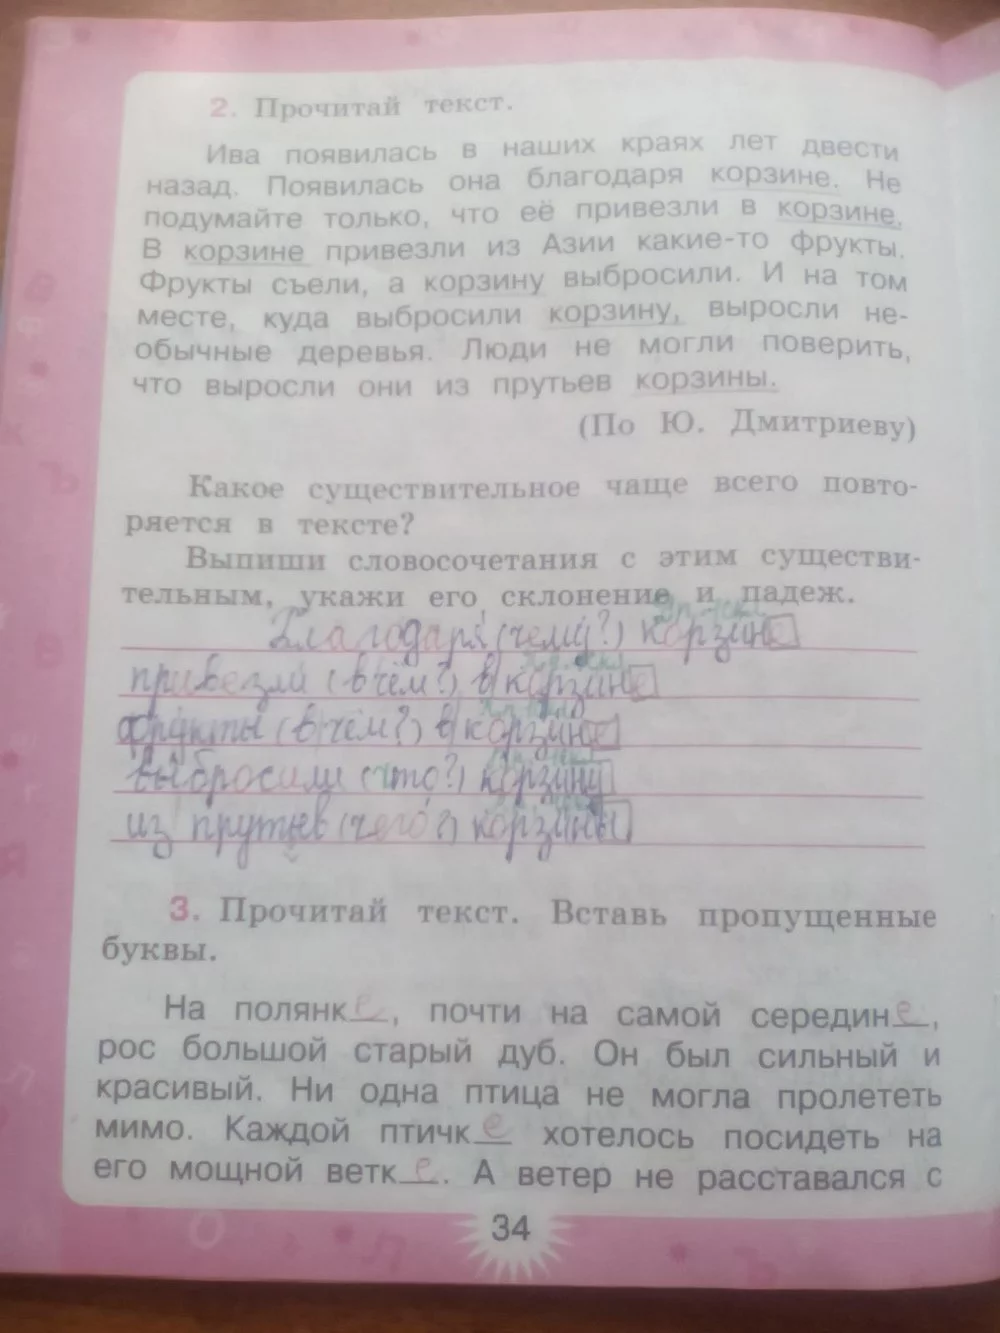 2. Прочитай текст.
Ива появилась в наших краях лет двести
назад. Появилась она благодаря корзине. Не
подумайте только, что её привезли в корзине.
В корзине привезли из Азии какие-то фрукты.
Фрукты съели, а корзину выбросили. И на том
месте, куда выбросили корзину, выросли не-
обычные деревья. Люди не могли поверить,
что выросли они из прутьев корзины.
(По Ю. Дмитриеву)
Какое существительное чаще всего повто-
ряется в тексте?
Выпиши словосочетания с этим существи-
тельным, укажи его склонение и падеж.
Благодаря (чему?) корзине
привезли (в чём?) в корзине
фрукты (в чём?) в корзине
выбросили (что?) корзину
из прутьев (чего?) корзины
3. Прочитай текст. Вставь пропущенные
буквы.
На полянке, почти на самой середине,
рос большой старый дуб. Он был сильный и
красивый. Ни одна птица не могла пролететь
мимо. Каждой птичке хотелось посидеть на
его мощной ветке. А ветер не расставался с
34